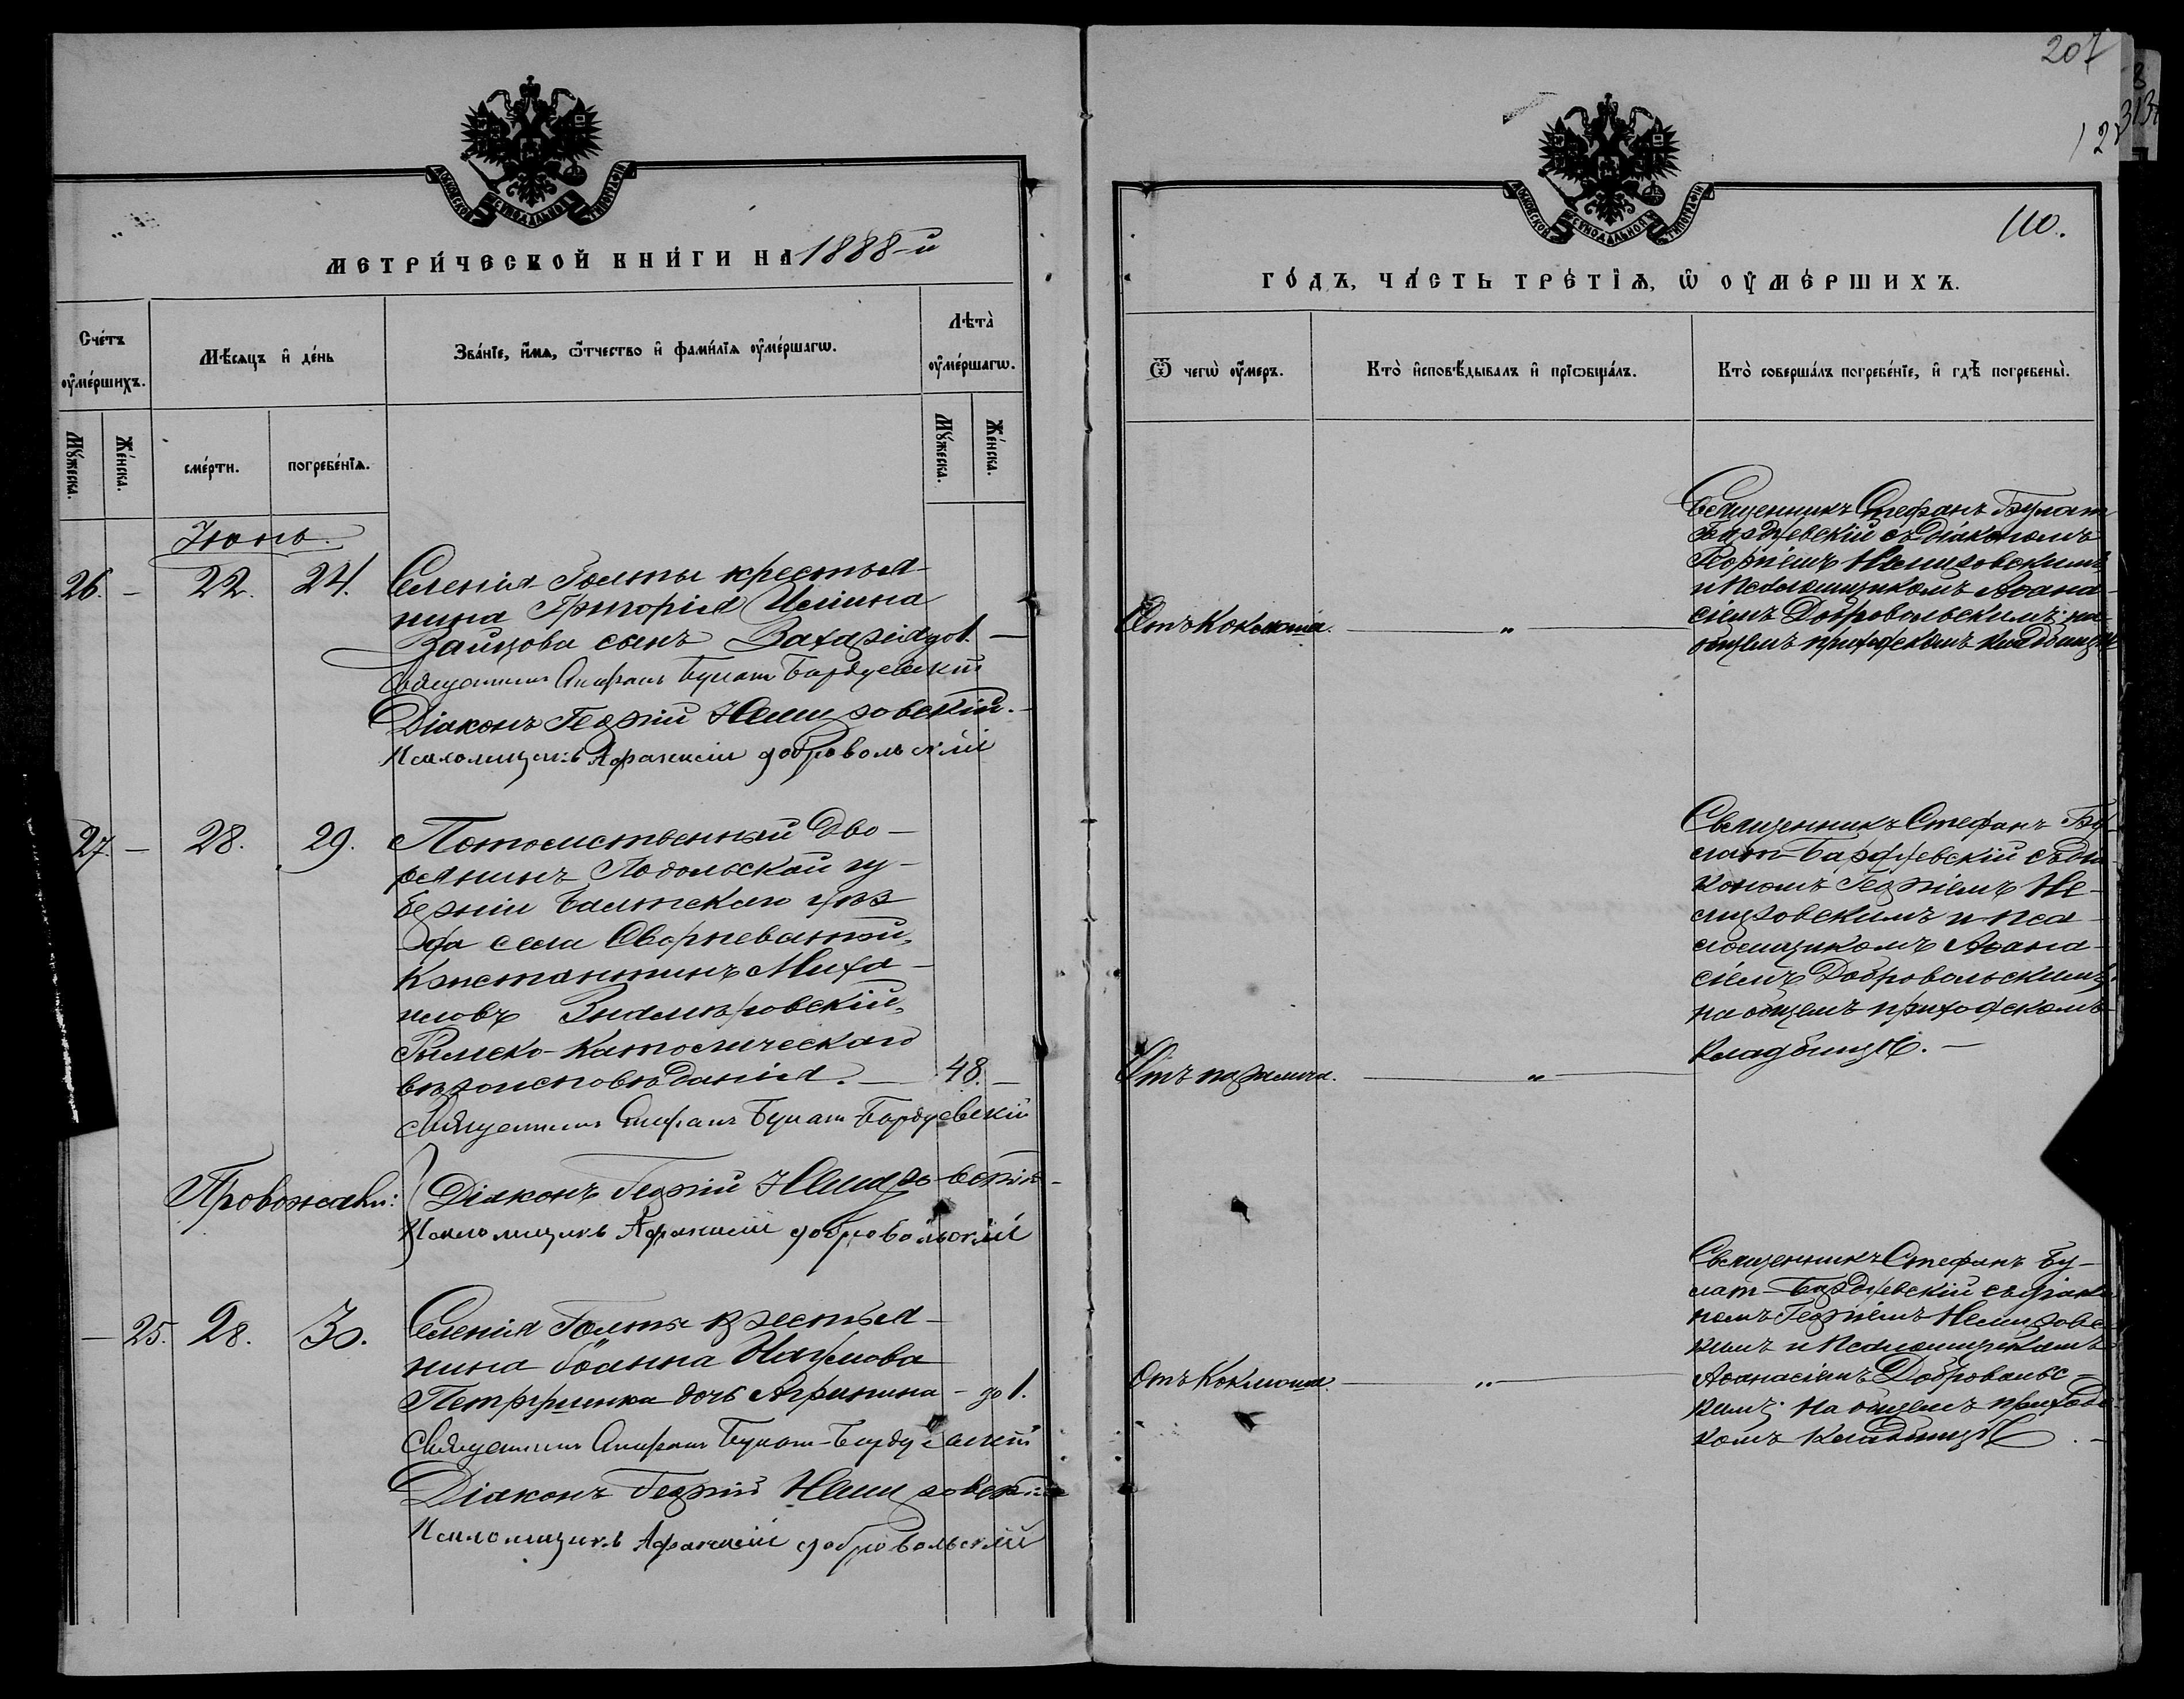 207
110.
МОСКОВСКОЙ СѴНОДАЛЬНОЙ ТИПОГРАФІИ
МОСКОВСКОЙ СѴНОДАЛЬНОЙ ТИПОГРАФІИ
МЕТРИ́ЧЕСКОЙ КНИ́ГИ НА 1888-й
ГО́ДЪ, ЧА́СТЬ ТРЕ́ТІѦ, Ѡ ОУМЕ́РШИХЪ.
Сче́тъ оуме́ршихъ.
Мꙋ́жеска.
Же́нска.
Мѣ́сяцъ и де́нь
сме́рти.
погребе́нїѧ.
Зва́нїе, и́мѧ, ѻ́тчество и фами́лїѧ оуме́ршагѡ.
Лѣта̀ оуме́ршагѡ.
Мꙋ́жеска.
Же́нска.
Ѿ чегѡ̀ оу́меръ.
Кто̀ исповѣ́дывалъ и прїѡбща́лъ.
Кто̀ соверша́лъ погребе́нїе, и гдѣ̀ погребены̀.
Іюнь.
26. - 22. 24. Селенія Голты крестья-
нина Григорія
Зайцова сынъ Захарія до 1. -
Священникъ Стефанъ Булат-Бардуевскій
Діаконъ Георгій Немировскій.
Псаломщикъ Афанасій Добровольскій
Отъ Коклюша. - " -
Священникъ Стефанъ Булат
Бардуевскій съ діакономъ
Георгіемъ Немировскимъ
и псаломщикомъ Аѳана-
сіемъ Добровольскимъ на
общемъ приходскомъ кладбищѣ
27. - 28. 29. Потомственный Дво-
рянинъ Подольской гу-
берніи Балтскаго уѣз
да села
Константинъ Миха-
иловъ
Римско-Католическаго
вѣроисповѣданія. - 48. -
Священникъ Стефанъ Булат-Бардуевскій
Провожали: Діаконъ Георгій Немировскій
Псаломщикъ Афанасій Добровольскій
" -
Священникъ Стефанъ Бу-
лат-Бардуевскій съ діа-
кономъ Георгіемъ Не-
мировскимъ и пса-
ломщикомъ Аѳана-
сіемъ Добровольскимъ
на общемъ приходскомъ
Кладбищѣ. -
- 25. 28. 30. Селенія Голты крестья-
нина Іоанна Наумова
дочь Агрипина - до 1.
Священникъ Стефанъ Булат-Бардуевскій
Діаконъ Георгій Немировскій
Псаломщикъ Афанасій Добровольскій
Отъ Коклюша. - " -
Священникъ Стефанъ Бу-
лат-Бардуевскій съ діако
номъ Георгіемъ Немировс
кимъ и Псаломщикомъ
Аѳанасіемъ Добровольс-
кимъ на общемъ приходс
комъ Кладбищѣ. -